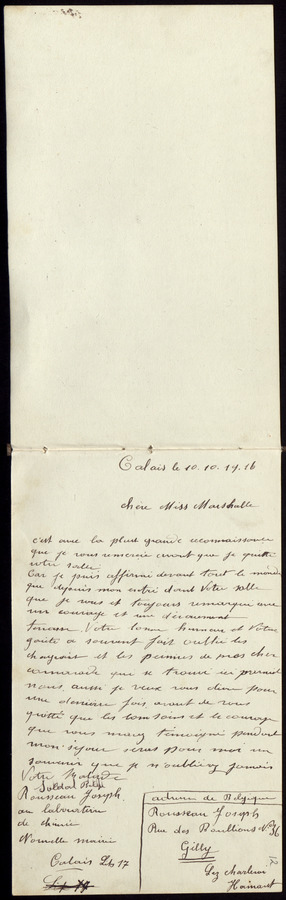 Calais le 10.10.1916
chere Miss Marshalle
c'est avec la plus grande reconnaissance
que je vous remercie avant que je quitte
votre salle
Car je puis affirmé devant tout le monde
que depuis mon entré dans votre salle
que je vous et toujours remarquer avec
un courage et un dévouement
Votre bonne humeur et Votre
gaité a souvent fait oublié les
chagrint et les pennes de mes cher
camarade que se trouve ici parmit
nous, aussi je veux vous dire pour
une dernière fois avant de vous
quitté que les bons soins et le courage
que vous mavez témoigné pendant
mon séjour seras pour moi un
souvenir que je n'oublirez jamais
Votre Malade
Soldat Belge
Rousseau Joseph
au laboratoire
de chimie
Nouvelle mairie
Calais D 17
adresse de Belgique
Rousseau Joseph
Rue des Bouillons N° 36
Gilly
lez charleroi
Hainaut